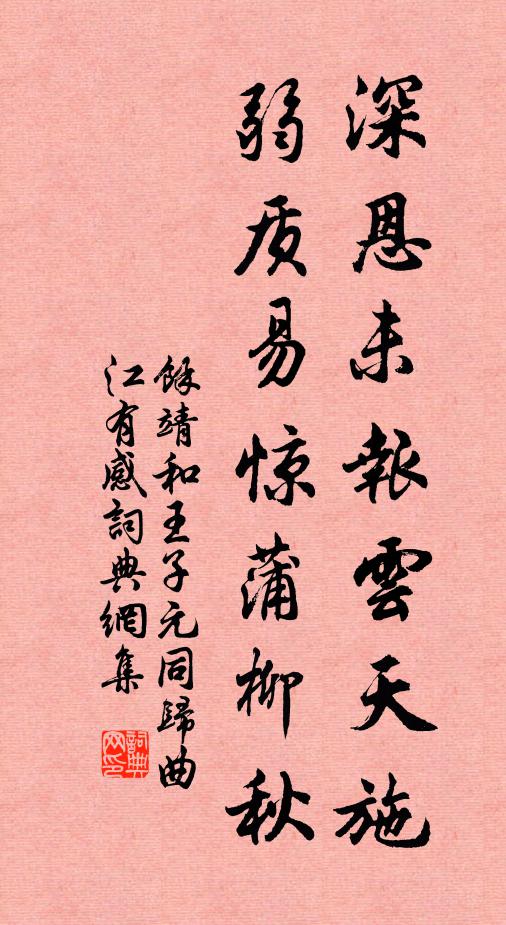 深恩未報雲天施
弱质易惊蒲柳秋
餘靖和王子元同歸曲
江有感詞典網集
詞典
网印